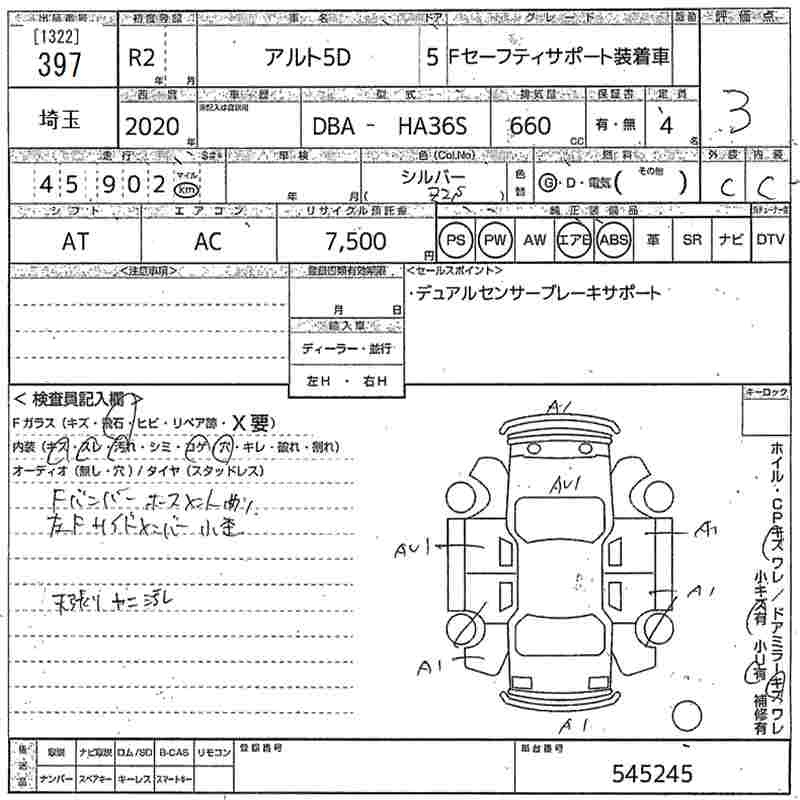 出品番号 初度登録 車名 ドア グレード 評価点
[1322]
397 R2 年 月 アルト5D 5 Fセーフティサポート装着車
3
西暦 車歴 型式 排気量 保証書 定員
埼玉 2020年 DBA - HA36S 660 CC 有・無 4名
走行 車検 色(Col.No) 燃料 外装 内装
45902 マイル km 年 月 シルバー Z2S 色替 G・D・電気( その他 ) C C
シフト エアコン リサイクル預託金 純正装備品
AT AC 7,500円 PS PW AW エアB ABS 革 SR ナビ DTV
<注意事項> 登録書類有効期限 <セールスポイント>
月 日 ・デュアルセンサーブレーキサポート
輸入車
ディーラー・並行
左H ・ 右H
< 検査員記入欄 > キーロック
Fガラス (キズ・飛石・ヒビ・リペア跡・X要)
内装 (キズ・スレ・汚れ・シミ・コゲ・穴・キレ・破れ・割れ)
オーディオ (無し・穴) / タイヤ (スタッドレス)
Fバンパー
左Fサイドメンバー 小歪
天張り ヤニ汚レ
A1
AU1
AU1 A1
A1
A1
A1
ホイル・CPキズワレ/ドアミラーキズワレ
小キズ有 小U有 補修有
後送品 取説 ナビ取説 ロム/SD B-CAS リモコン 登録番号 車台番号
ナンバー スペアキー キーレス スマートキー 545245